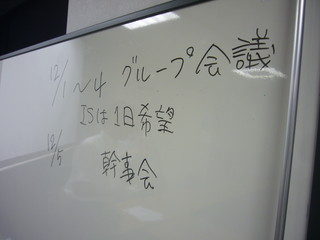 12/1〜4 グループ会議
ISは1日希望
12/5 幹事会